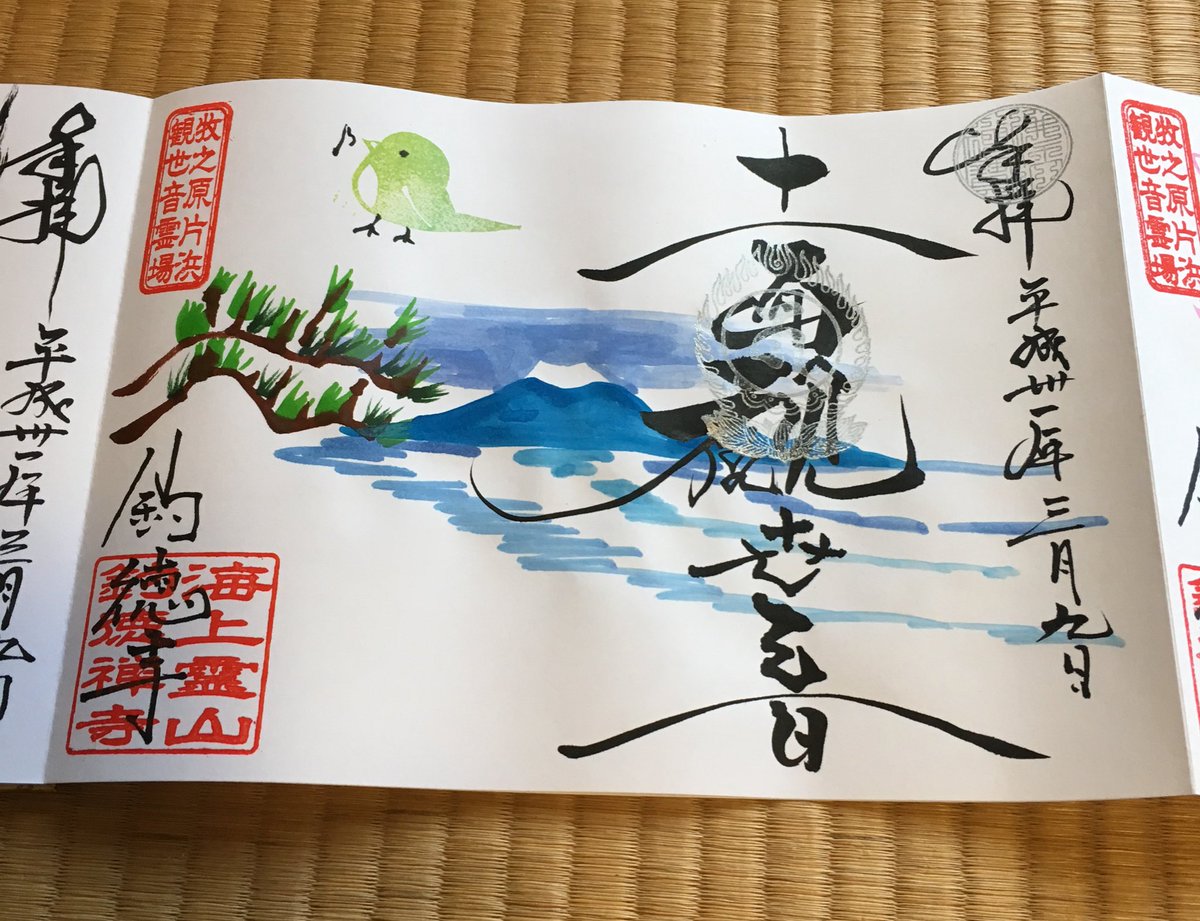 牧之原片浜
観世音霊場
奉拝 平成卅一年三月九日
十一面観世音
牧之原片浜
観世音霊場
釣徳寺
海上靈山
釣徳禅寺
奉拝 平成卅一年三月九日